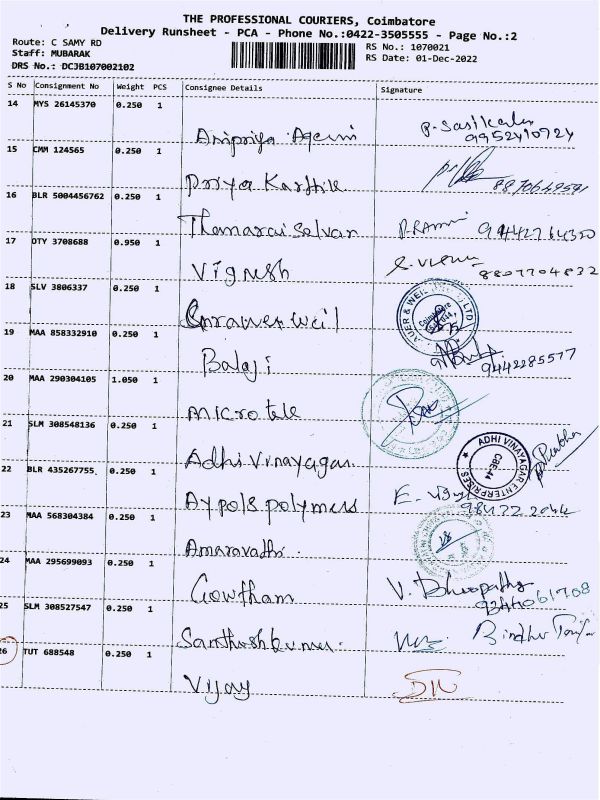 THE PROFESSIONAL COURIERS, Coimbatore
Delivery Runsheet - PCA - Phone No.:0422-3505555 - Page No.:2
Route: C SAMY RD
RS No.: 1070021
Staff: MUBARAK
RS Date: 01-Dec-2022
DRS No.: DCJB107002102
S No Consignment No Weight PCS Consignee Details Signature
14 MYS 26145370 0.250 1
P. Sasikala
9952410724
15 CMM 124565 0.250 1
Priya Karthik
16 BLR 5004456762 0.250 1
Thamarai Selvan 9442764350
17 DTY 3708688 0.950 1
Vignesh
8807704832
18 SLV 3806337 0.250 1
19 MAA 858332910 0.250 1
Balaji
9442285577
20 MAA 290304105 1.050 1
Microtek
21 SLM 308548136 0.250 1
Adhi Vinayagar
ADHI VINAYAGAR ENTERPRISES
CBE-44
Prabha
22 BLR 435267755 0.250 1
Aypols polymers
23 MAA 568304384 0.250 1
Amaravathi
24 MAA 295699093 0.250 1
Gowtham V. Bhoopathy
25 SLM 308527547 0.250 1
Santhoshkumar
26 TUT 688548 0.250 1
Vijay